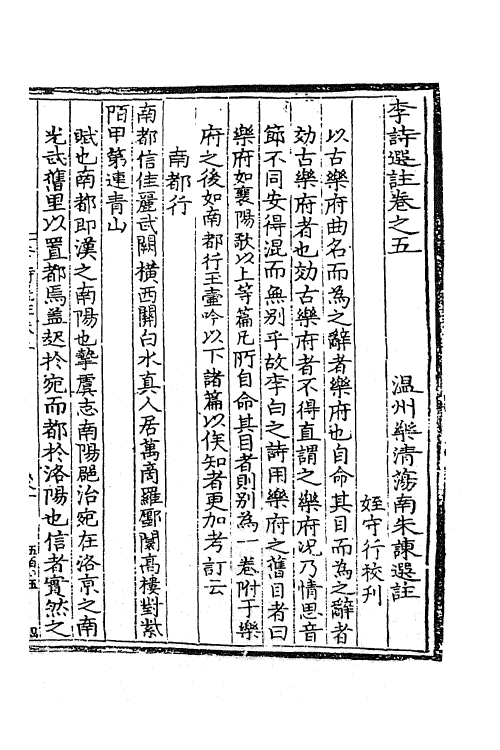 李詩選註卷之五
温州樂清蕩南朱諫選註
姪守行校刋
以古樂府曲名而為之辭者樂府也自命其目而為之辭者
効古樂府者也効古樂府者不得直謂之樂府况乃情思音
節不同安得混而無别乎故李白之詩用樂府之舊目者曰
樂府如襄陽歌以上等篇凡所自命其目者則别為一卷附于樂
府之後如南都行玉壺吟以下諸篇以俟知者更加考訂云
南都行
南都信佳麗武闕橫西關白水真人居萬商羅鄽闤高樓對紫
陌甲第連青山
賦也南都即漢之南陽也摯虞志南陽郡治宛在洛京之南
光武舊里以置都焉盖起於宛而都於洛陽也信者實然之